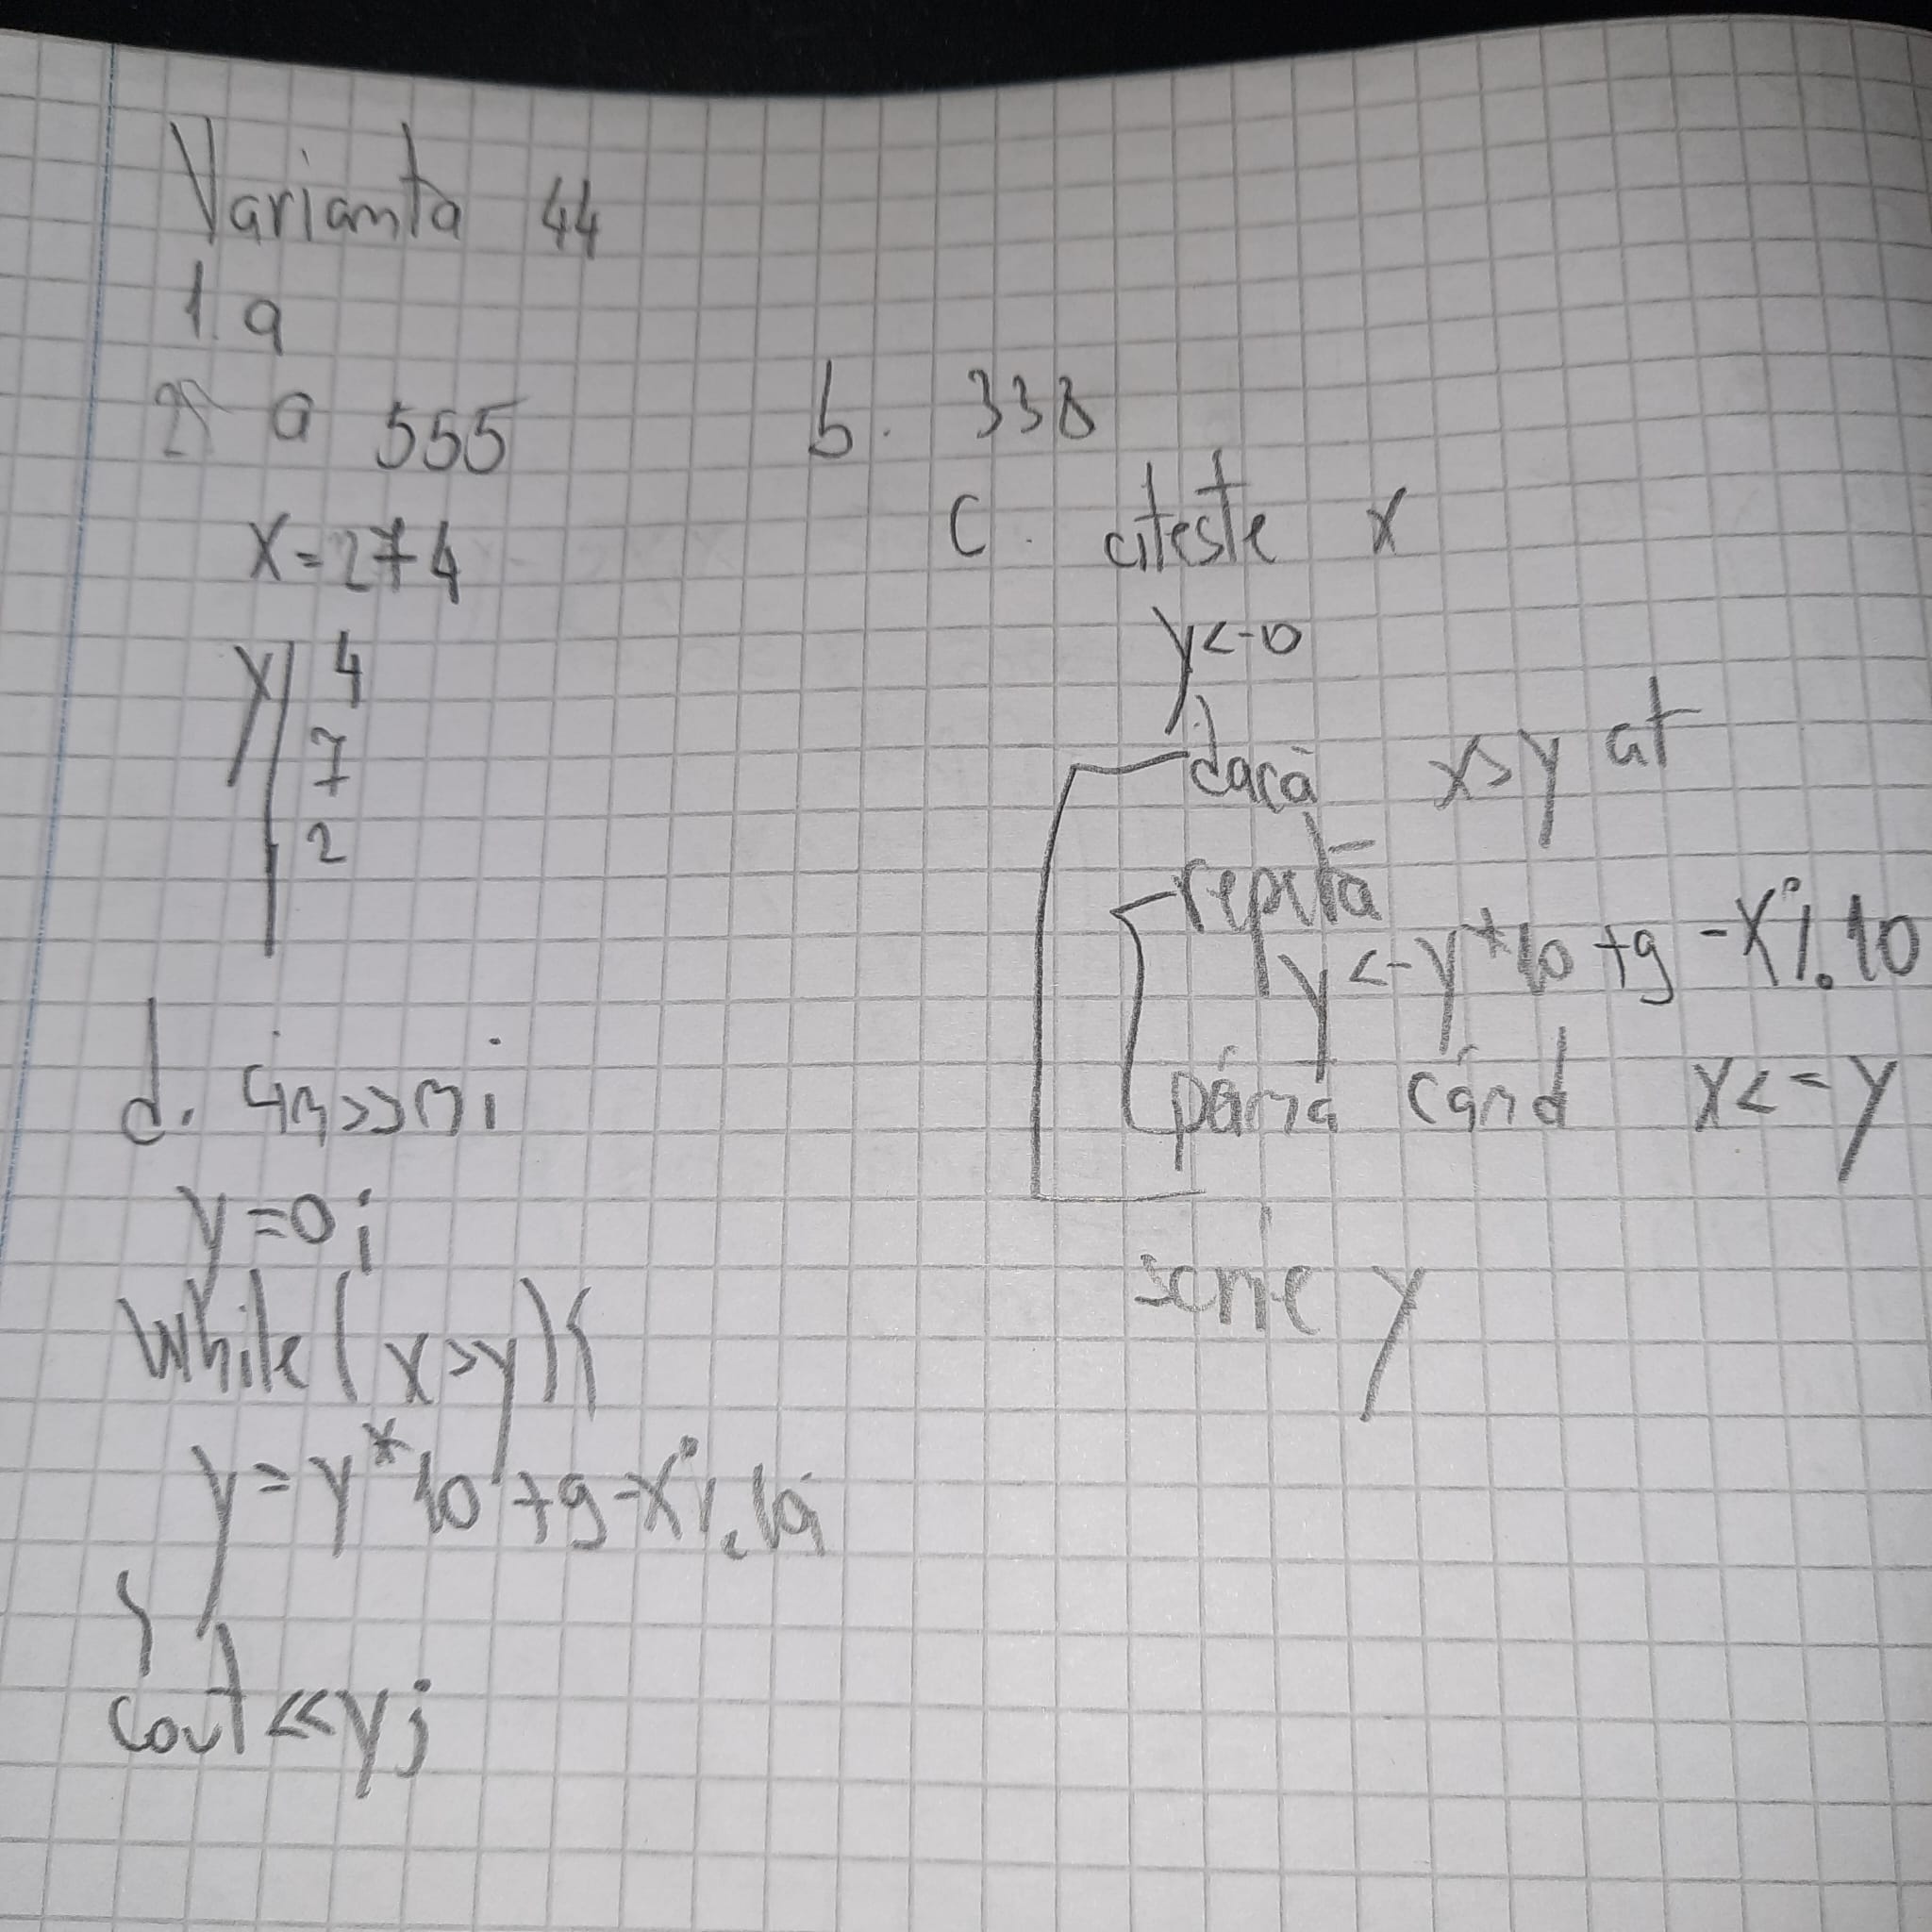 Varianta 44
1. a
2 a 555
X=274
y 4
7
2
b. 338
c. citeste x
y<-0
dacă x>y at
repetă
y<-y*10+9-x%10
până când x<=y
scrie y
d. cin>>n;
y=0;
while(x>y){
y=y*10+9-x%10;
}
cout<<y;